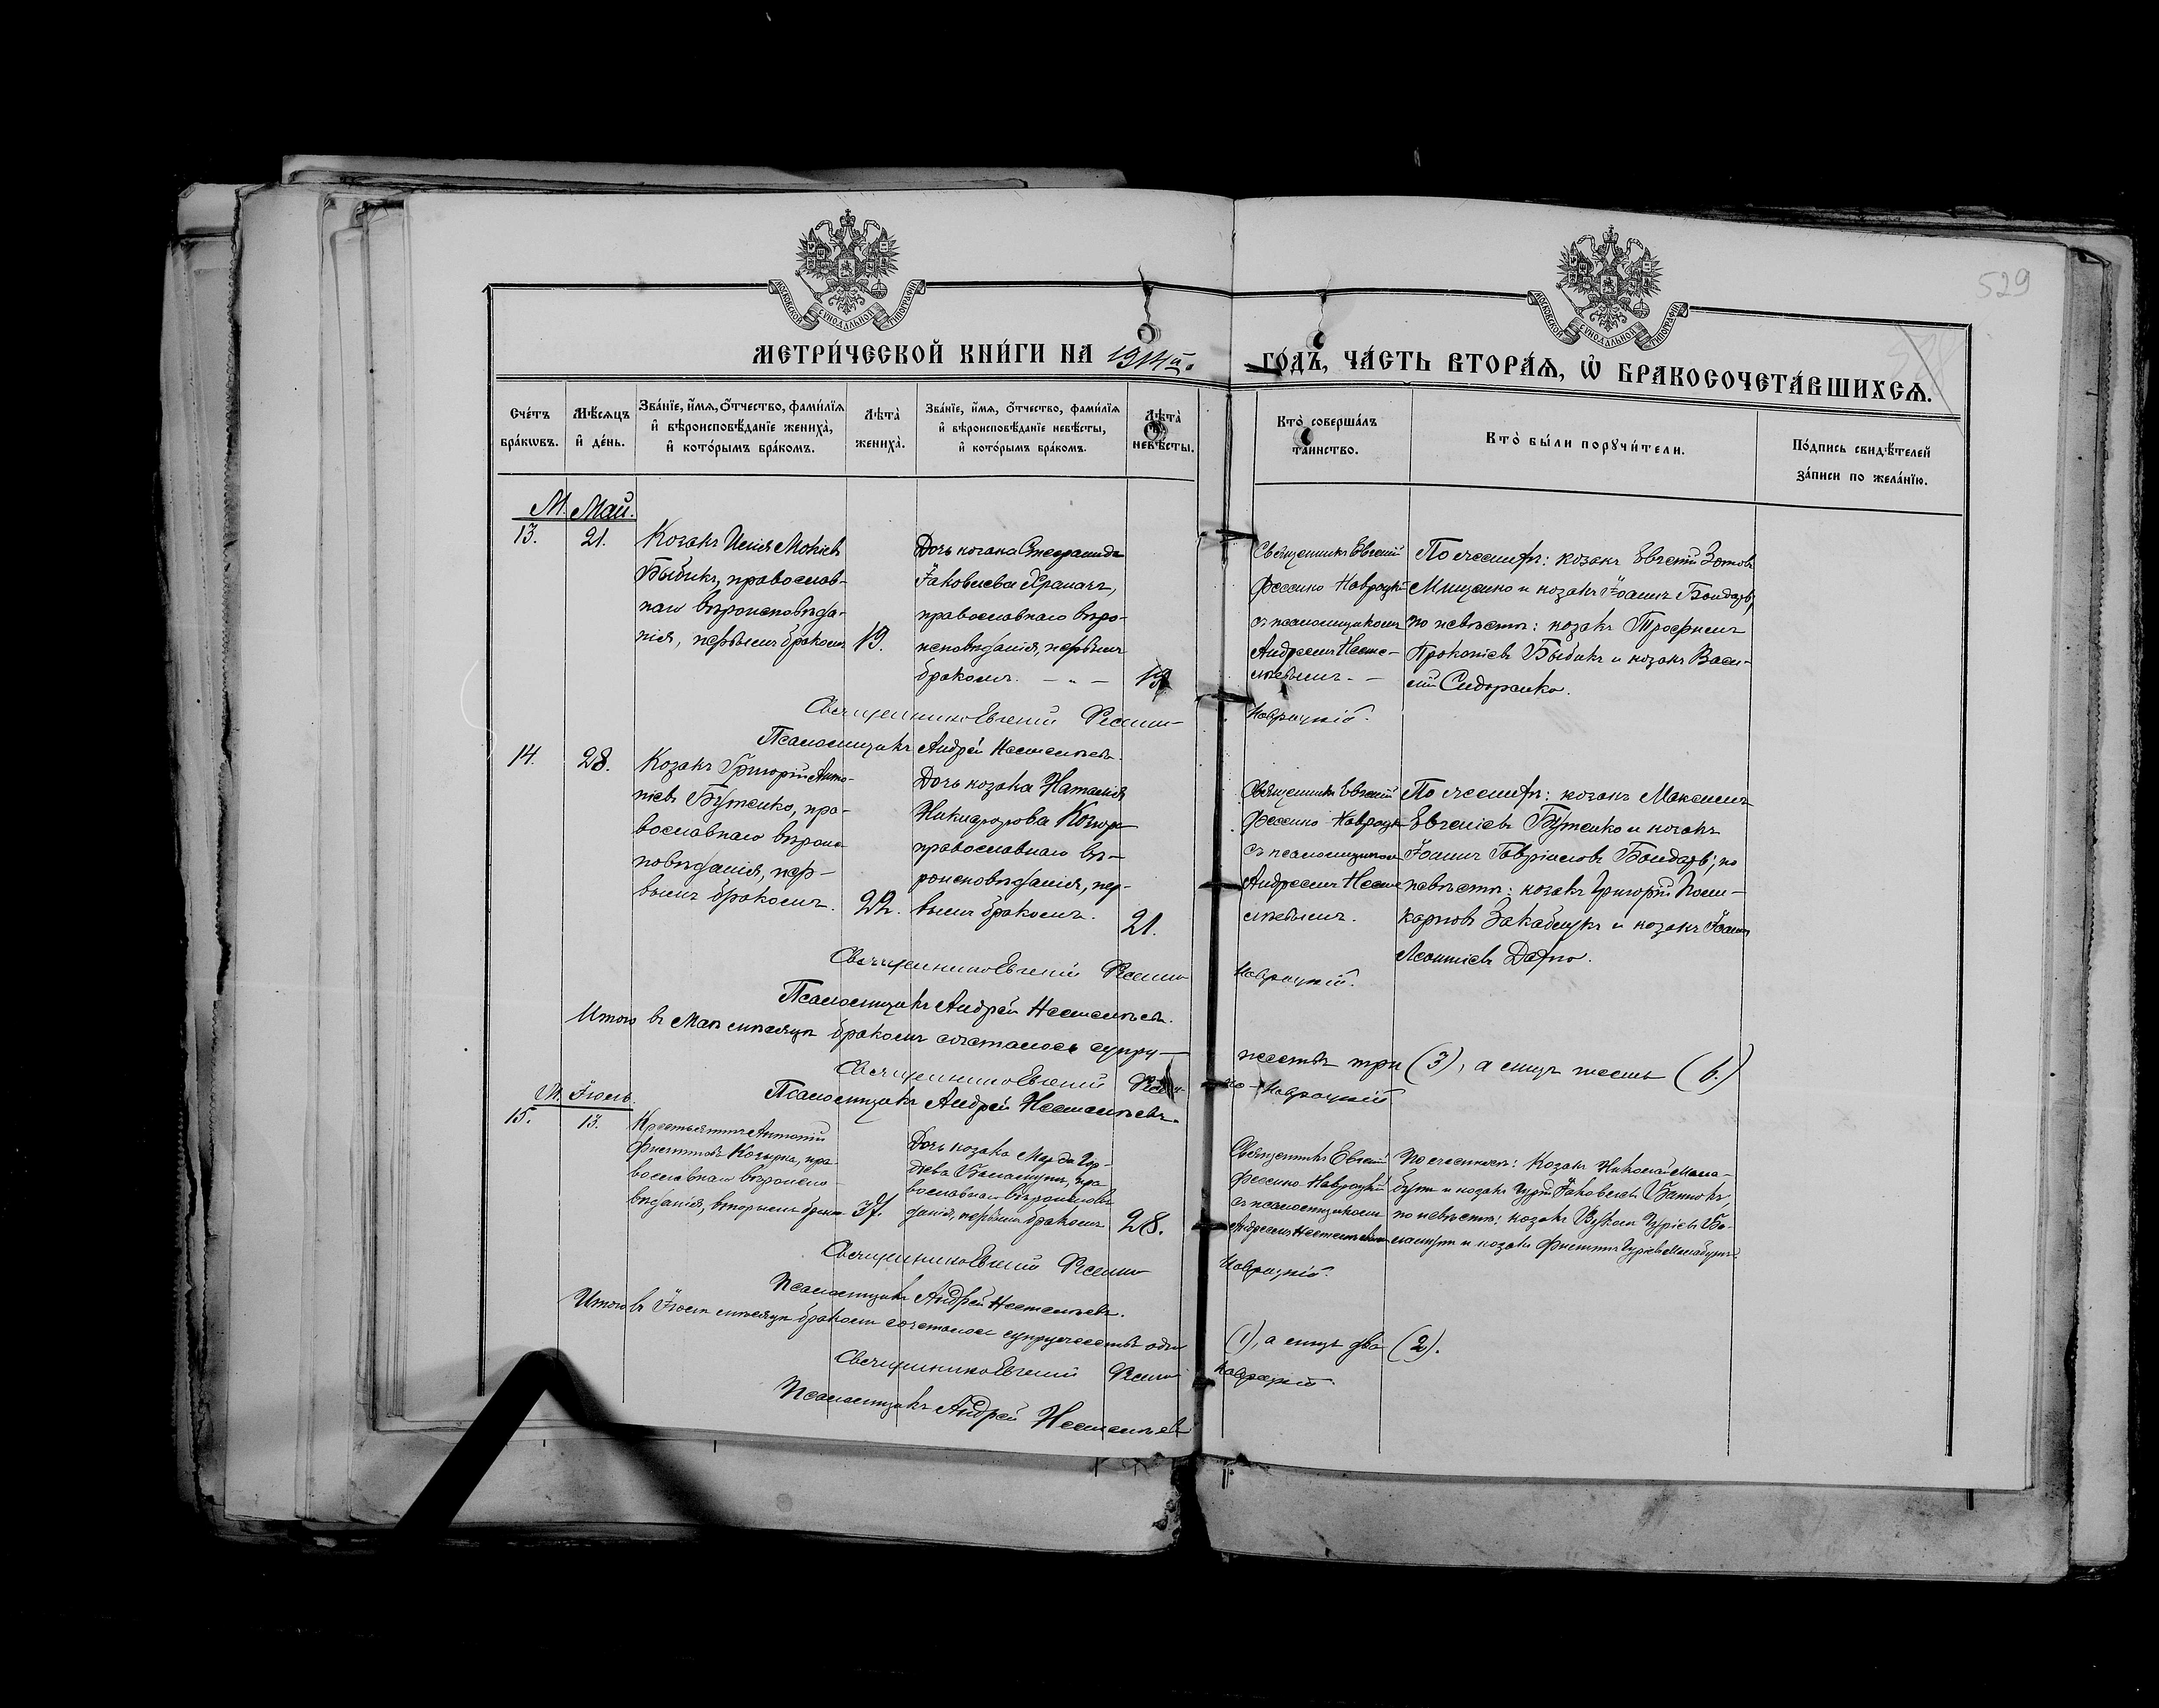 529
МОСКОВСКОЙ СѴНОДАЛЬНОЙ ТИПОГРАФІИ
МОСКОВСКОЙ СѴНОДАЛЬНОЙ ТИПОГРАФІИ
МЕТРИ́ЧЕСКОЙ КНИ́ГИ НА 1914й. ГО́ДЪ, ЧА́СТЬ ВТОРА́Ѧ, Ѡ҆ БРАКОСОЧЕТА́ВШИХСѦ.
Сче́тъ бра́кѡвъ.
Мѣ́сѧцъ и҆ де́нь.
Зва́нїе, и҆́мѧ, ѻ҆́тчество, фами́лїѧ
и҆ вѣроисповѣ́данїе жениха̀,
и҆ кото́рымъ бра́комъ.
Лѣта̀ жениха̀.
Зва́нїе, и҆́мѧ, ѻ҆́тчество, фами́лїѧ
и҆ вѣроисповѣ́данїе невѣ́сты,
и҆ кото́рымъ бра́комъ.
Лѣта̀ невѣ́сты.
Кто̀ соверша́лъ
та́инство.
Кто̀ бы́ли порꙋчи́тели.
По́дпись свидѣ́телей
за́писи по жела́нїю.
М. Май.
13.
21.
Козакъ Илія Мокіевъ
Быбикъ, православ-
наго вѣроисповѣда-
нія, первымъ бракомъ
19.
Дочь козака Стефанида
Іаковлева Храпачъ,
православнаго вѣро-
исповѣданія, первымъ
бракомъ. — „ —
Священникъ Евгеній
Фесенко-Навроцкій
съ псаломщикомъ
Андреемъ Неме-
По женихѣ: козакъ Евгеній Зотовъ
Мищенко и козакъ Іоаннъ Бондарь;
по невѣстѣ: козакъ Трофимъ
Прокопіевъ Быбикъ и козакъ Васи-
лій Сидоренко.
Священникъ Евгеній Фесенко-
Навроцкій.
Псаломщикъ Андрей
14.
28.
Козакъ Григорій Анто-
ніевъ Бутенко, пра-
вославнаго вѣроис-
повѣданія, пер-
вымъ бракомъ.
22.
Дочь козака Наталія
Никифорова
православнаго вѣ-
роисповѣданія, пер-
вымъ бракомъ.
21.
Священникъ Евгеній
Фесенко-Навроцк
съ псаломщикомъ
Андреемъ
По женихѣ: козакъ Максимъ
Евгеніевъ Бутенко и козакъ
Іоаннъ Гавріиловъ Бондарь; по
невѣстѣ: козакъ Григорій Поли-
карповъ Закаблукъ и козакъ Іоаннъ
Леонтіевъ
Священникъ Евгеній Фесенко
Навроцкій.
Псаломщикъ Андрей
Итого въ Маѣ мѣсяцѣ бракомъ сочеталось супру-
жествъ три (3), а лицъ шесть (6.)
Священникъ Евгеній Фесен-
ко-Навроцкій
Псаломщикъ Андрей
М. Іюль.
15.
13.
Крестьянинъ Антоній
Козырка, пра-
вославнаго вѣроиспо-
вѣданія, вторымъ брако
37.
Дочь козака
пра-
вославнаго вѣроисповѣ
данія, первымъ бракомъ
28.
Священникъ Евгеній
Фесенко-Навроцкій
съ псаломщикомъ
Андреемъ
По женихѣ: Козакъ Николай
и козакъ Гурій Іаковлевъ
по невѣстѣ: козакъ Гуріевъ
и козакъ Гуріевъ
Священникъ Евгеній Фесенко
Навроцкій.
Псаломщикъ Андрей
Итого въ Іюлѣ мѣсяцѣ бракомъ сочеталось супружествъ одно
(1), а лицъ два (2).
Священникъ Евгеній Фесенко
Навроцкій
Псаломщикъ Андрей